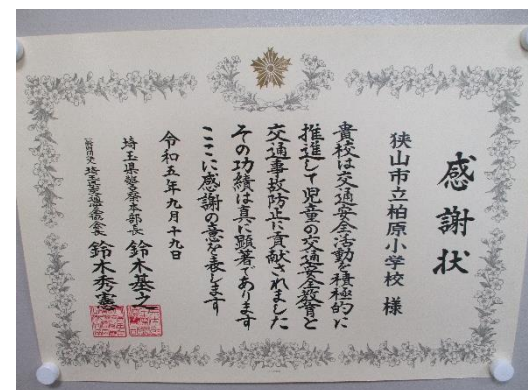 感謝状
狭山市立柏原小学校 様
貴校は交通安全活動を積極的に
推進して児童の交通安全教育と
交通事故防止に貢献されました
その功績は真に顕著であります
ここに感謝の意を表します
令和五年九月十九日
埼玉県警察本部長 鈴木基之
埼玉県交通安全協会長 鈴木秀憲